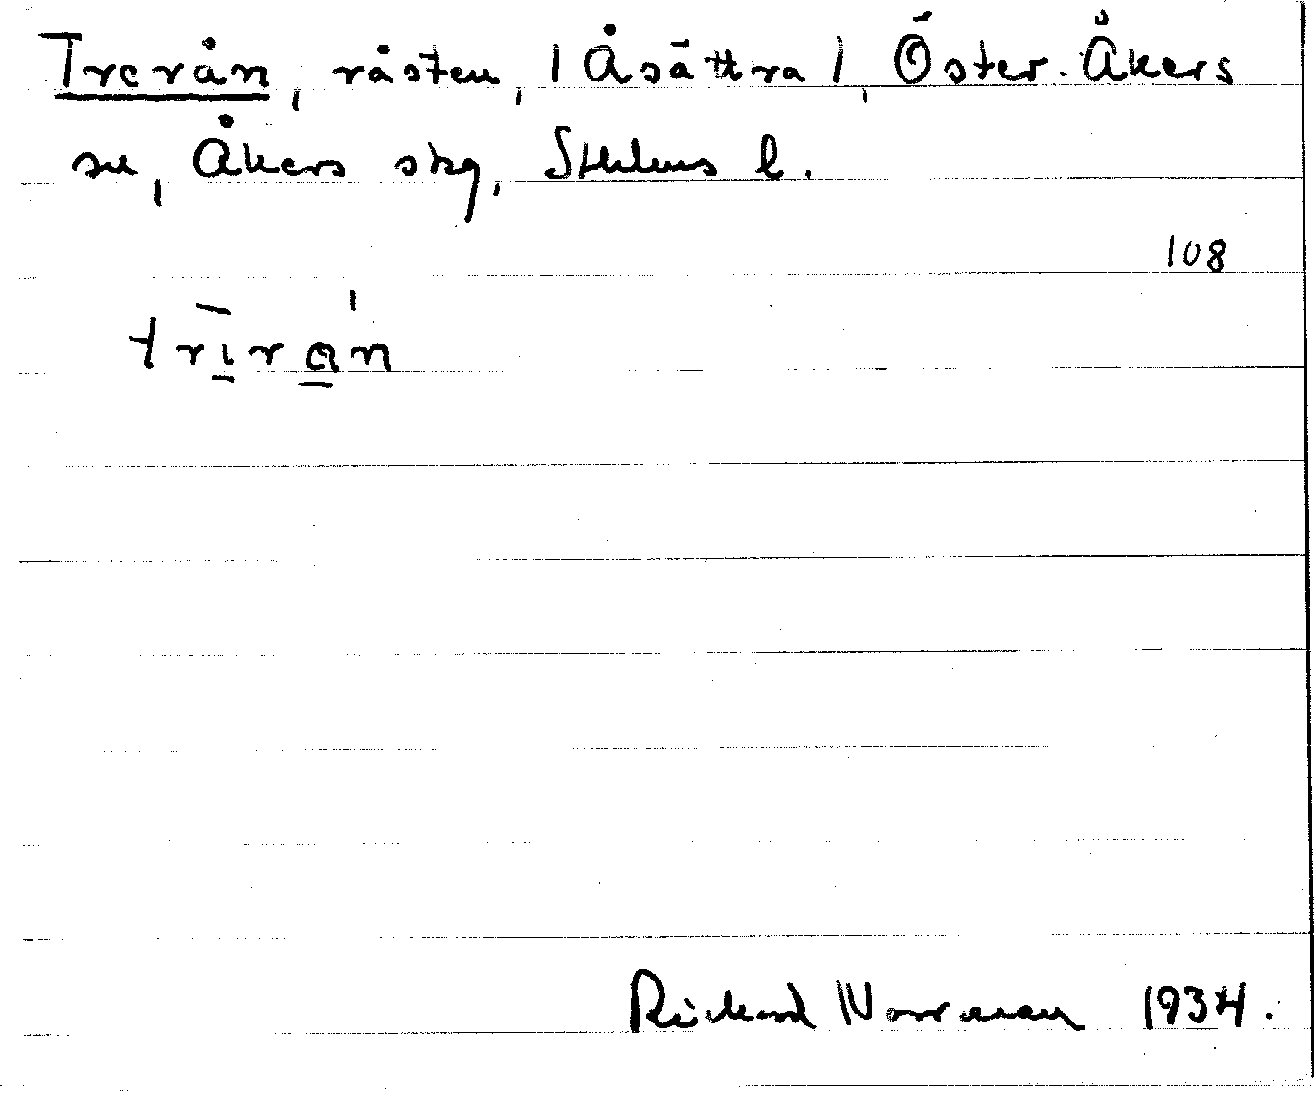 Trerån, råsten, /Åsättra/, Öster-Åkers
sn, Åkers skg, Sthlms l.
108
trīrán
Rickard Norrman 1934.